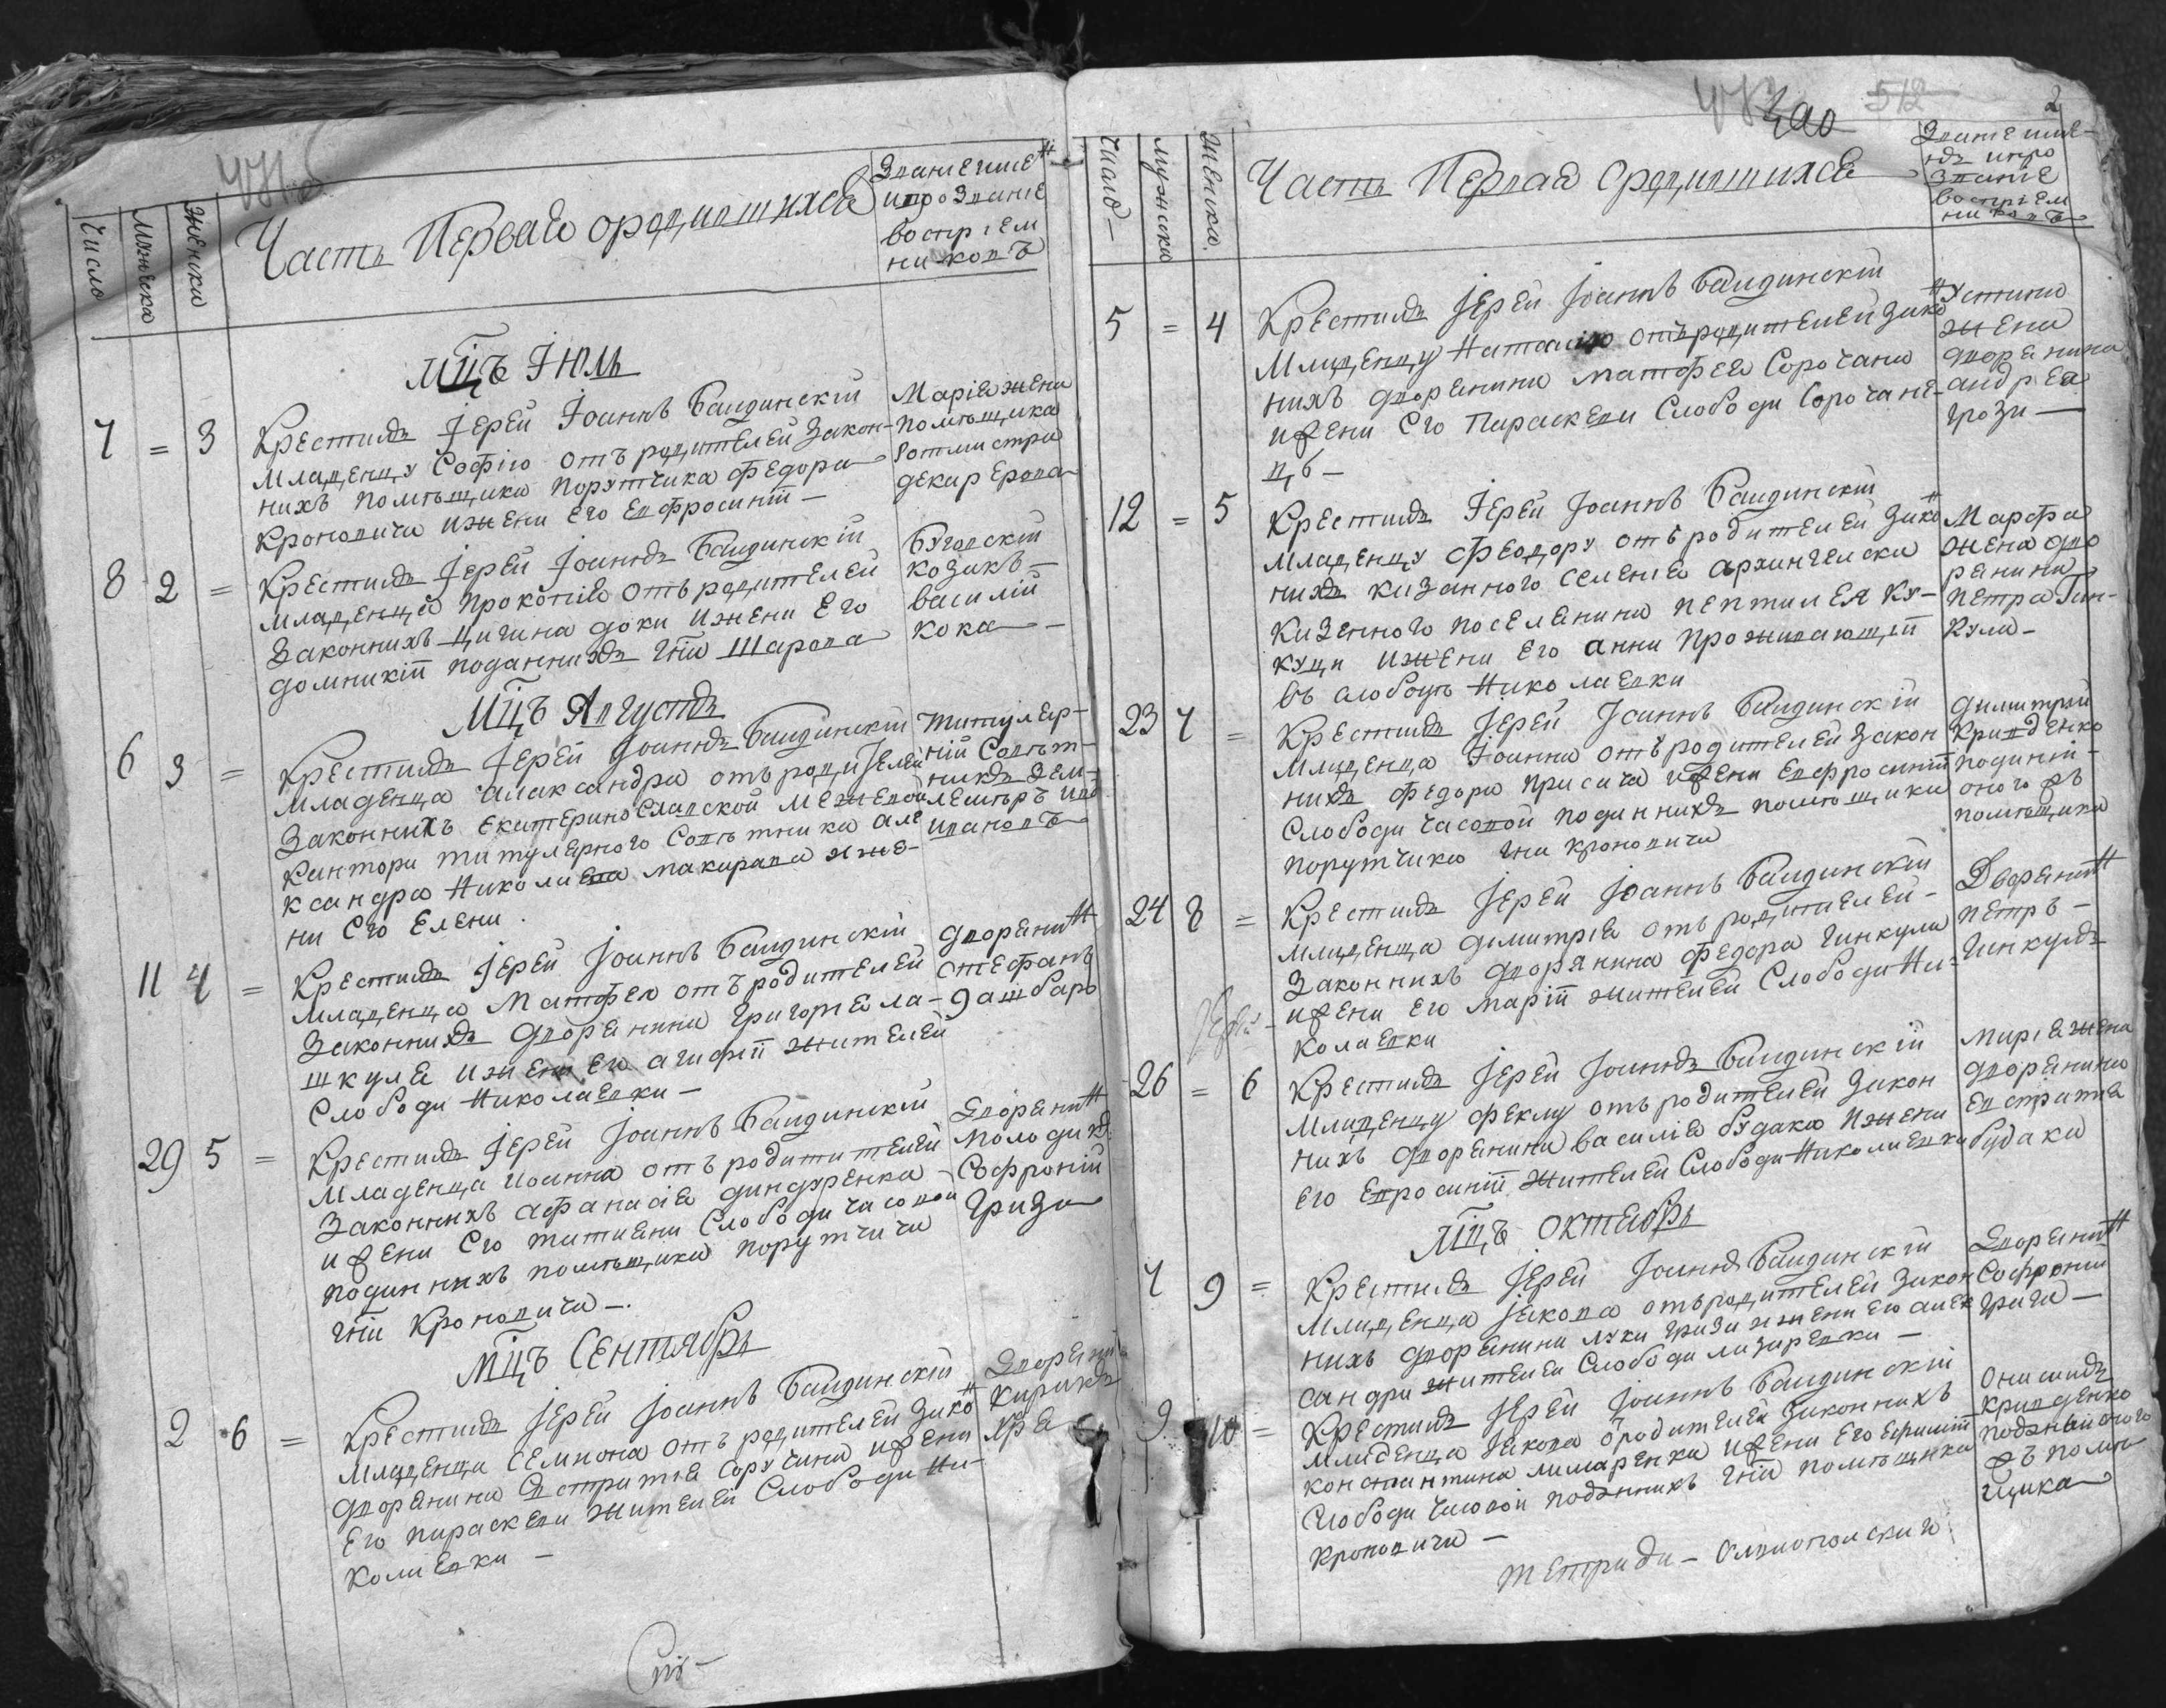 Число
Мужеска
Женска
Часть Первая о родившихся
Звание имя
и прозвание
воспрiем
никовъ
Мцъ Iюль
7 = 3 Крестилъ Iерей Iоаннъ Бандинскiй
Младенцу Софiю отъ родителей Закон-
нихъ помѣщика Порутчика Федора
Кроновича и жени Его Евфросинiи —
Марiя жена
помѣщика
Ротмистра
8 2 = Крестилъ Iерей Iоаннъ Бандинскiй
Младенца Прокопiя отъ родителей
Законнихъ цигана доки и жени Его
домникiи поданнихъ Гпи Шарова
Бугскiй
козакъ —
василiй
кока —
Мцъ Августъ
6 3 = Крестилъ Iерей Iоаннъ Бандинскiй
Младенца Александра отъ родителей
Законнихъ Екатеринославской межевой
Кантори титулярного Совѣтника Але
ксандра Николаева макарава и же-
ни Его Елени.
Титуляр-
нiй Совѣт-
никъ Зем-
лемѣръ
Ивановъ
11 4 = Крестилъ Iерей Iоаннъ Бандинскiй
Младенца Матфея отъ родителей
Законнихъ дворянина Григорiя ла-
шкула и жени Его агафiи жителей
Слободи Николаевки —
дворянинъ
стефанъ
29 5 = Крестилъ Iерей Iоаннъ Бандинскiй
Младенца Иоанна отъ родитителей
Законнихъ афанасiя диндуренка
и жени Его татияни Слободи Часовой
поданнихъ помѣщика порутчича
Гпи Кроновича —.
Дворянинъ
Софронiй
Грозa
Мцъ Сентябрь
2 6 = Крестилъ Iерей Iоаннъ Бандинскiй
Младенца Семиона отъ родителей Зако
дворянина Евстратiя Соручана и жени
Его параскеви жителей Слободи Ни-
колаевки —
Дворянинъ
512
2
Число —
мужска
женска.
Часть Первая о родившихся
Звание имя-
и про
звание
воспрiем
никовъ
5 = 4 Крестилъ Iерей Iоаннъ Бандинскiй
Младенцу Наталiю отъ родителей Зако
нихъ дворянина матфея Сорочана
и жени Его Параскеви Слободи Сорочане-
Устина
жена
дворянина
андрея
грози —
12 = 5 Крестилъ Iерей Iоаннъ Бандинскiй
Младенцу Феодору отъ родителей Зако
нихъ казанного селенiя архангелска
казенного поселянина пантилея Ку-
куци и жени Его анни проживающiи
въ слободѣ Николаевки
Марфа
жена дво
рянина
петра Гин-
кули —
23 7 = Крестилъ Iерей Iоаннъ Бандинскiй
Младенца Iоанна отъ родителей Закон
нихъ Федора присича и жени Евфросинiи
Слободи Часовой поданнихъ помѣщика
порутчика Гпи кроновича
димитрiй
Кравденко
поданiй-
оного жъ
помѣщика
24 8 = Крестилъ Iерей Iоаннъ Бандинскiй
Младенца димитрiя отъ родителей —
Законнихъ дворянина Федора Гинкули
и жени Его марiи жителей Слободи Ни-
колаевки
Дворянинъ
петръ —
Гинкулъ
26 = 6 Крестилъ Iерей Iоаннъ Бандинскiй
Младенцу феклу отъ родителей Закон
нихъ дворянина василiя будака и жени
Его Евросинiи жителей Слободи Николаевки
марiя жена
дворянина
Евстратiя
будаки
Мцъ октябрь
7 9 = Крестилъ Iерей Iоаннъ Бандинскiй
Младенца Iакова отъ родителей Закон
нихъ дворянина луки грози и жени Его алек
сандри жителей Слободи лазаревки —
Дворянинъ
Софронiй
9 10 = Крестилъ Iерей Iоаннъ Бандинскiй
Младенца Iакова о родителей Законнихъ
константина лимаренка и жени Его
Слободи Часовой поданнихъ Гпи помѣщика
Кроновича —
Онисимъ
Кравденко
поданiй оного
жъ помѣ
щика